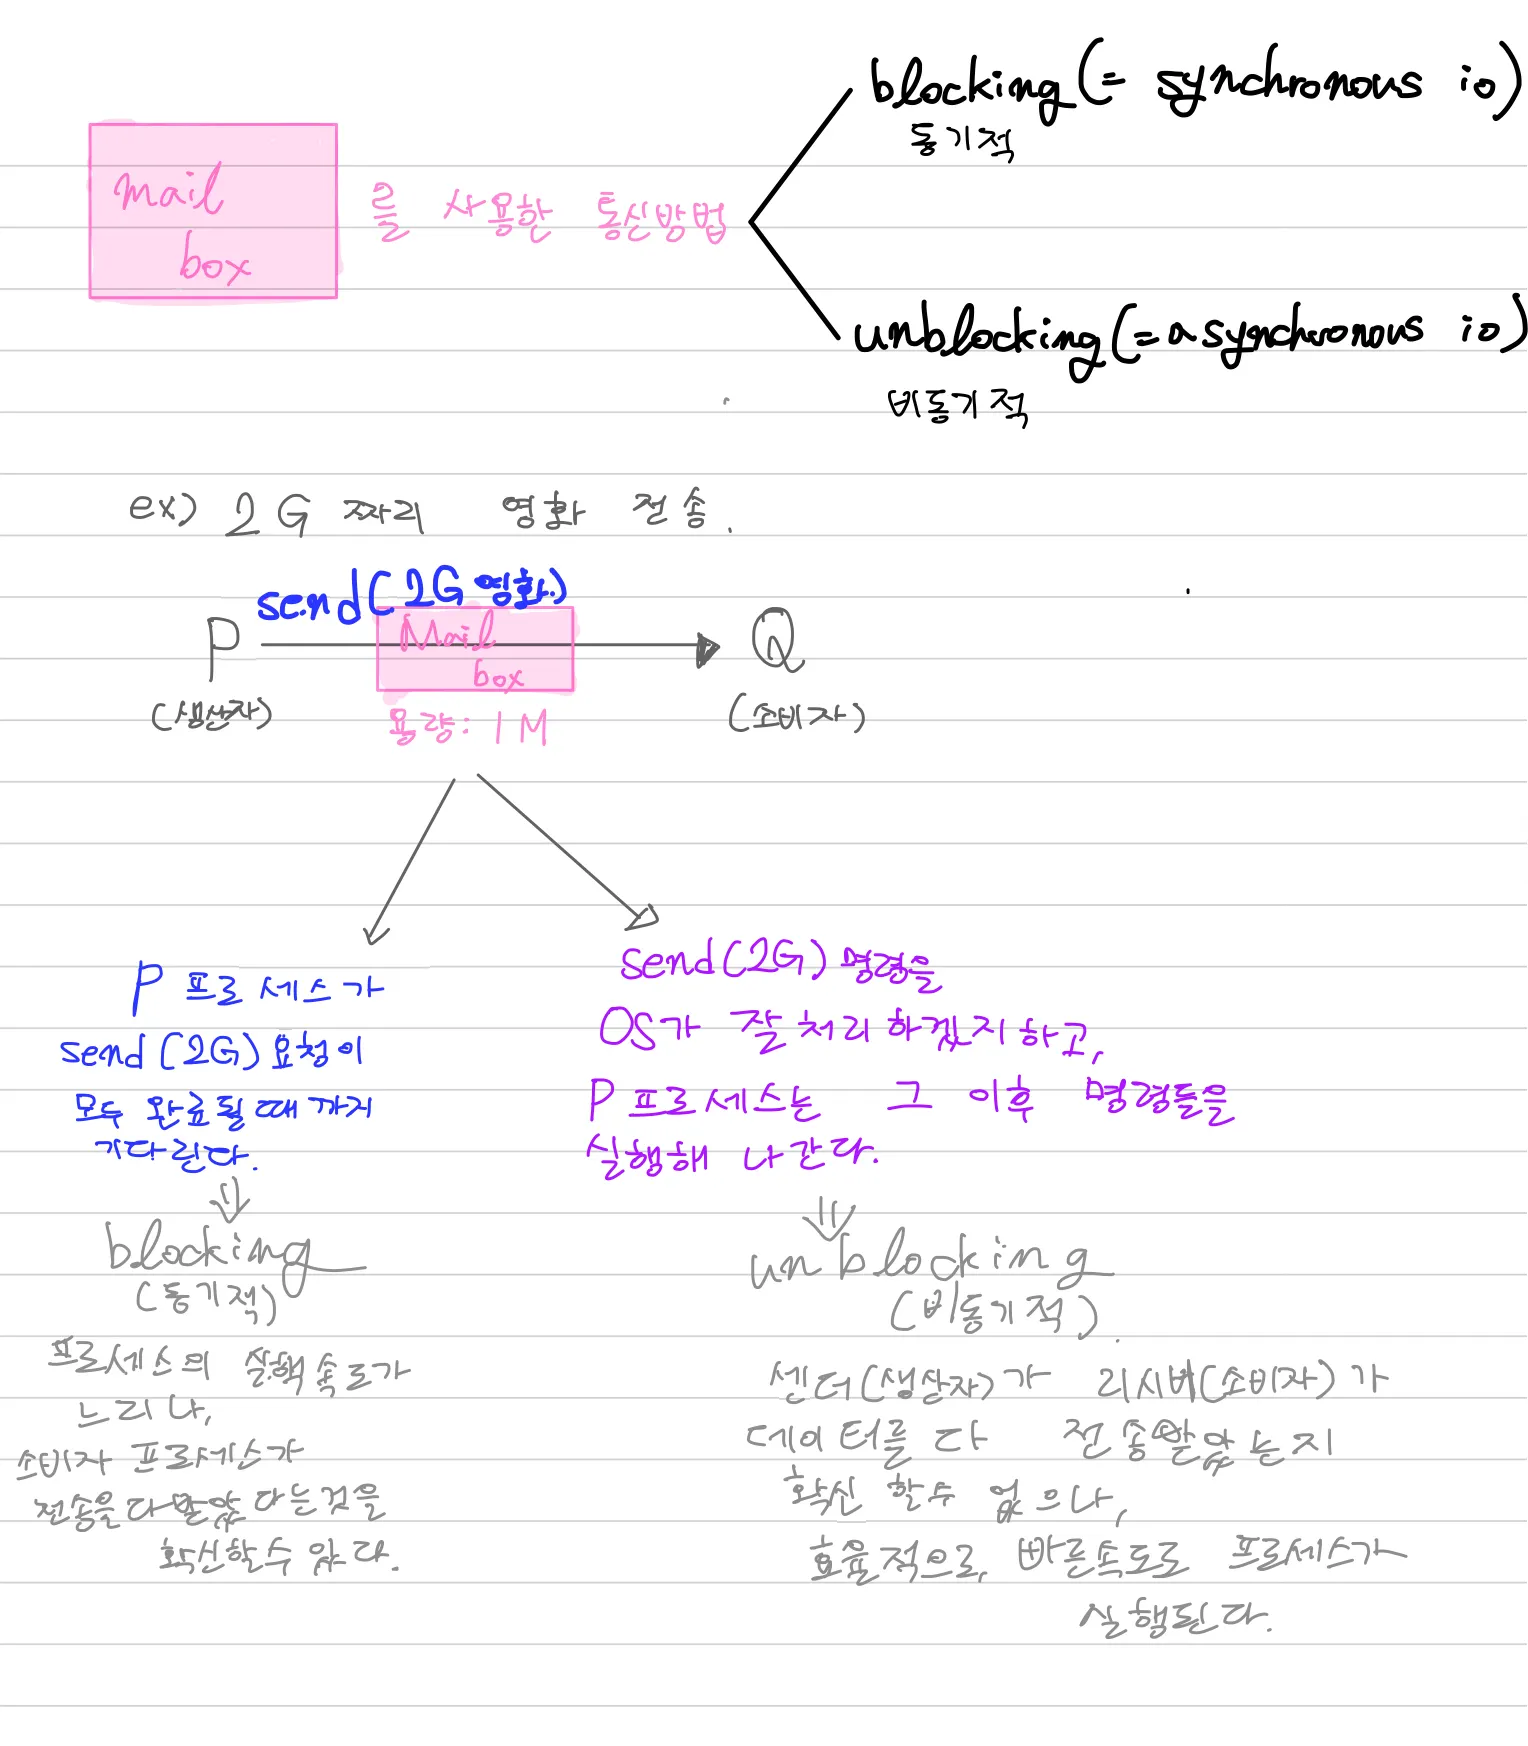 blocking (= synchronous io)
동기적
mail
box
를 사용한 통신방법
unblocking (= asynchronous io)
비동기적
ex) 2G 짜리 영화 전송.
send(2G 영화)
P
Mail
box
Q
(생산자)
용량: 1M
(소비자)
P 프로세스가
send(2G) 요청이
모두 완료될때까지
기다린다.
blocking
(동기적)
프로세스의 실행속도가
느리나,
소비자 프로세스가
전송을 다 받았다는것을
확신할수 있다.
send(2G) 명령을
OS가 잘 처리하겠지하고,
P 프로세스는 그 이후 명령들을
실행해 나간다.
unblocking
(비동기적).
센더(생산자)가 리시버(소비자)가
데이터를 다 전송받았는지
확신 할수 없으나,
효율적으로, 빠른속도로 프로세스가
실행된다.